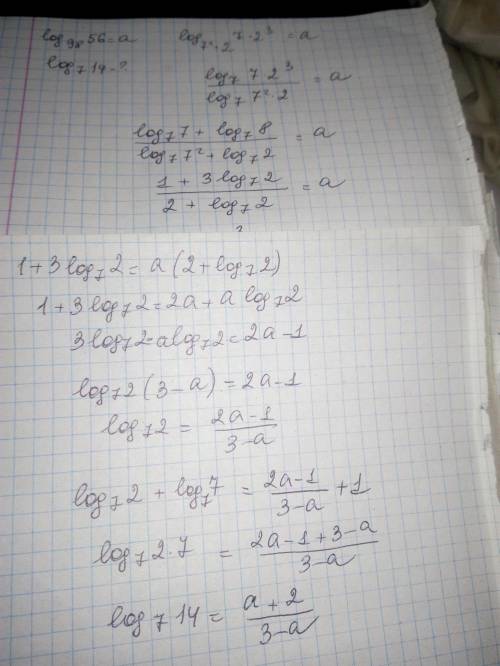 log₉₈56=a log₇²·₂ 7·2³ =a
log₇14-?
log₇ 7·2³ / log₇ 7²·2 = a
log₇7 + log₇8 / log₇7² + log₇2 = a
1 + 3log₇2 / 2 + log₇2 = a
1+3log₇2= a(2+log₇2)
1+3log₇2=2a+a log₇2
3log₇2-alog₇2=2a-1
log₇2(3-a)=2a-1
log₇2 = 2a-1 / 3-a
log₇2 + log₇7 = 2a-1 / 3-a +1
log₇2·7 = 2a-1+3-a / 3-a
log₇14= a+2 / 3-a